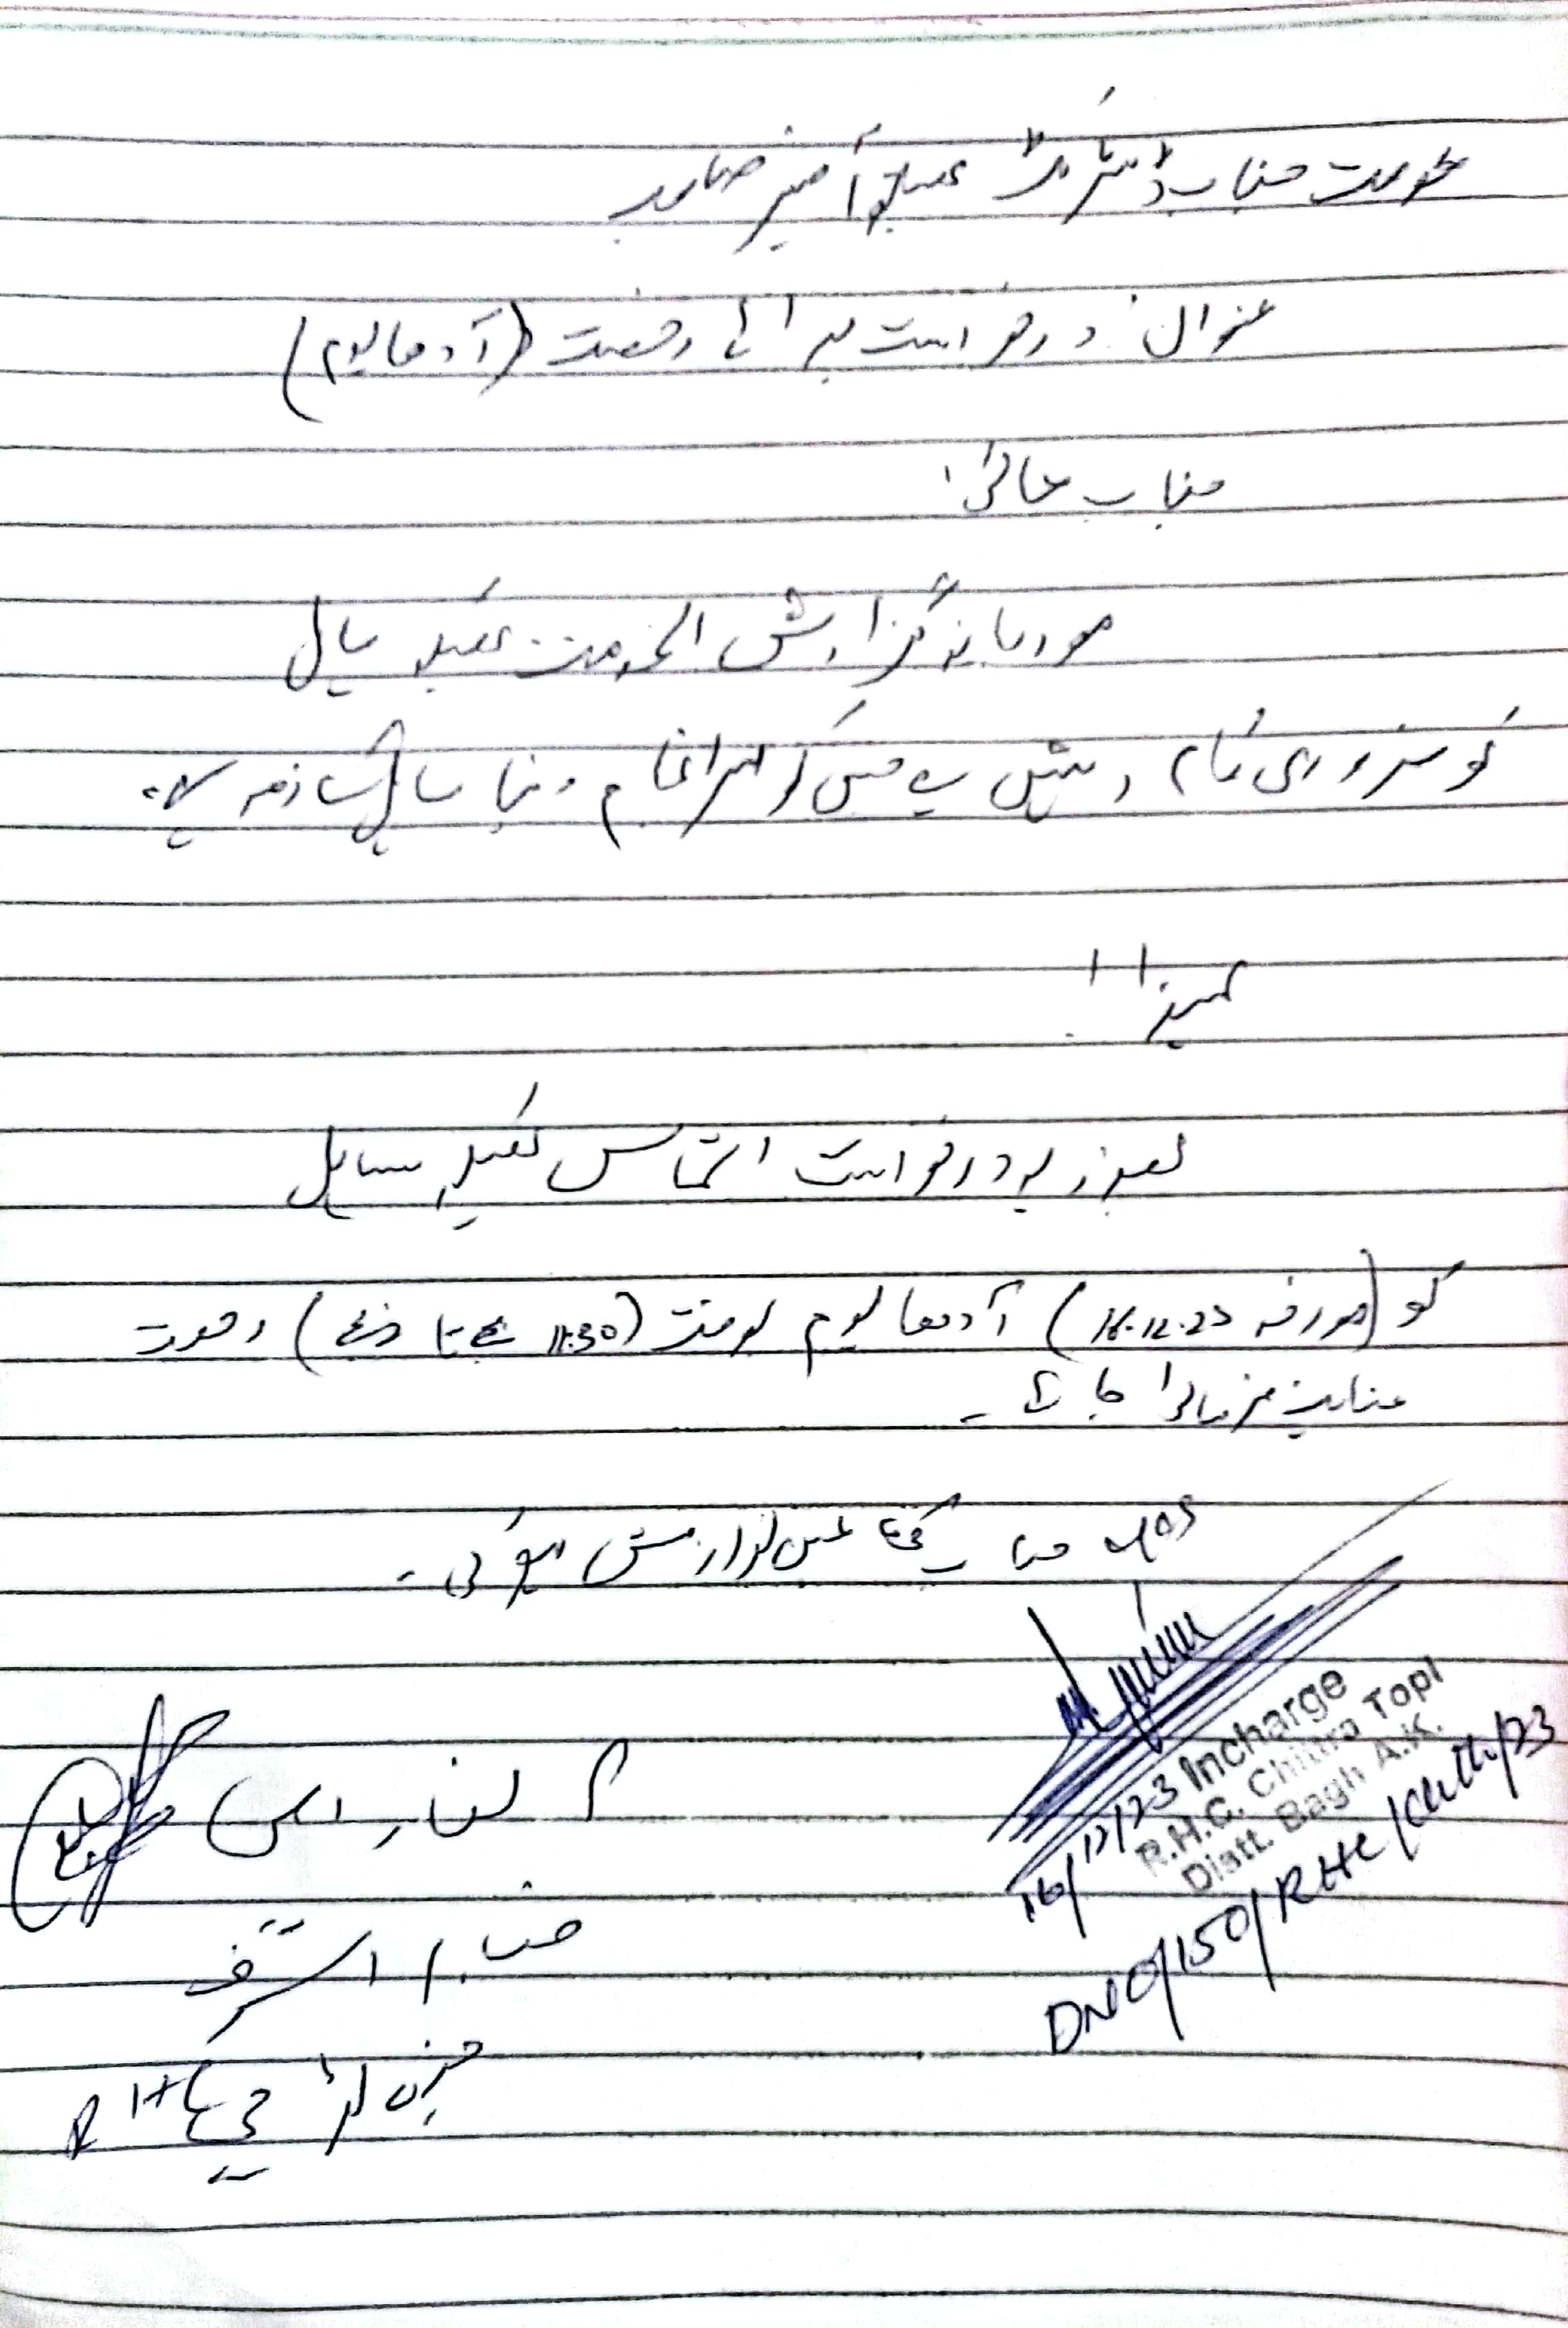 بخدمت جناب ڈسٹرکٹ ہیلتھ آفیسر صاحب
عنوان: درخواست برائے رخصت (آدھا یوم)
جناب عالی!
مودبانہ گزارش بخدمت سائل
کو ضروری کام درپیش ہے جس کو سرانجام دینا سائل لازم ہے۔
لہذا!
بذریعہ درخواست التماس سائل
کو (مورخہ 16.12.23) آدھا یوم بوقت (11:30 بجے تا) رخصت
عنایت فرمائی جائے۔
جناب کی عین نوازش ہو گی۔
العارض
اشرف
RHC
16/12/23 Incharge
R.H.C. Chitra Topi
Distt. Bagh A.K.
DNO/150/RHC/